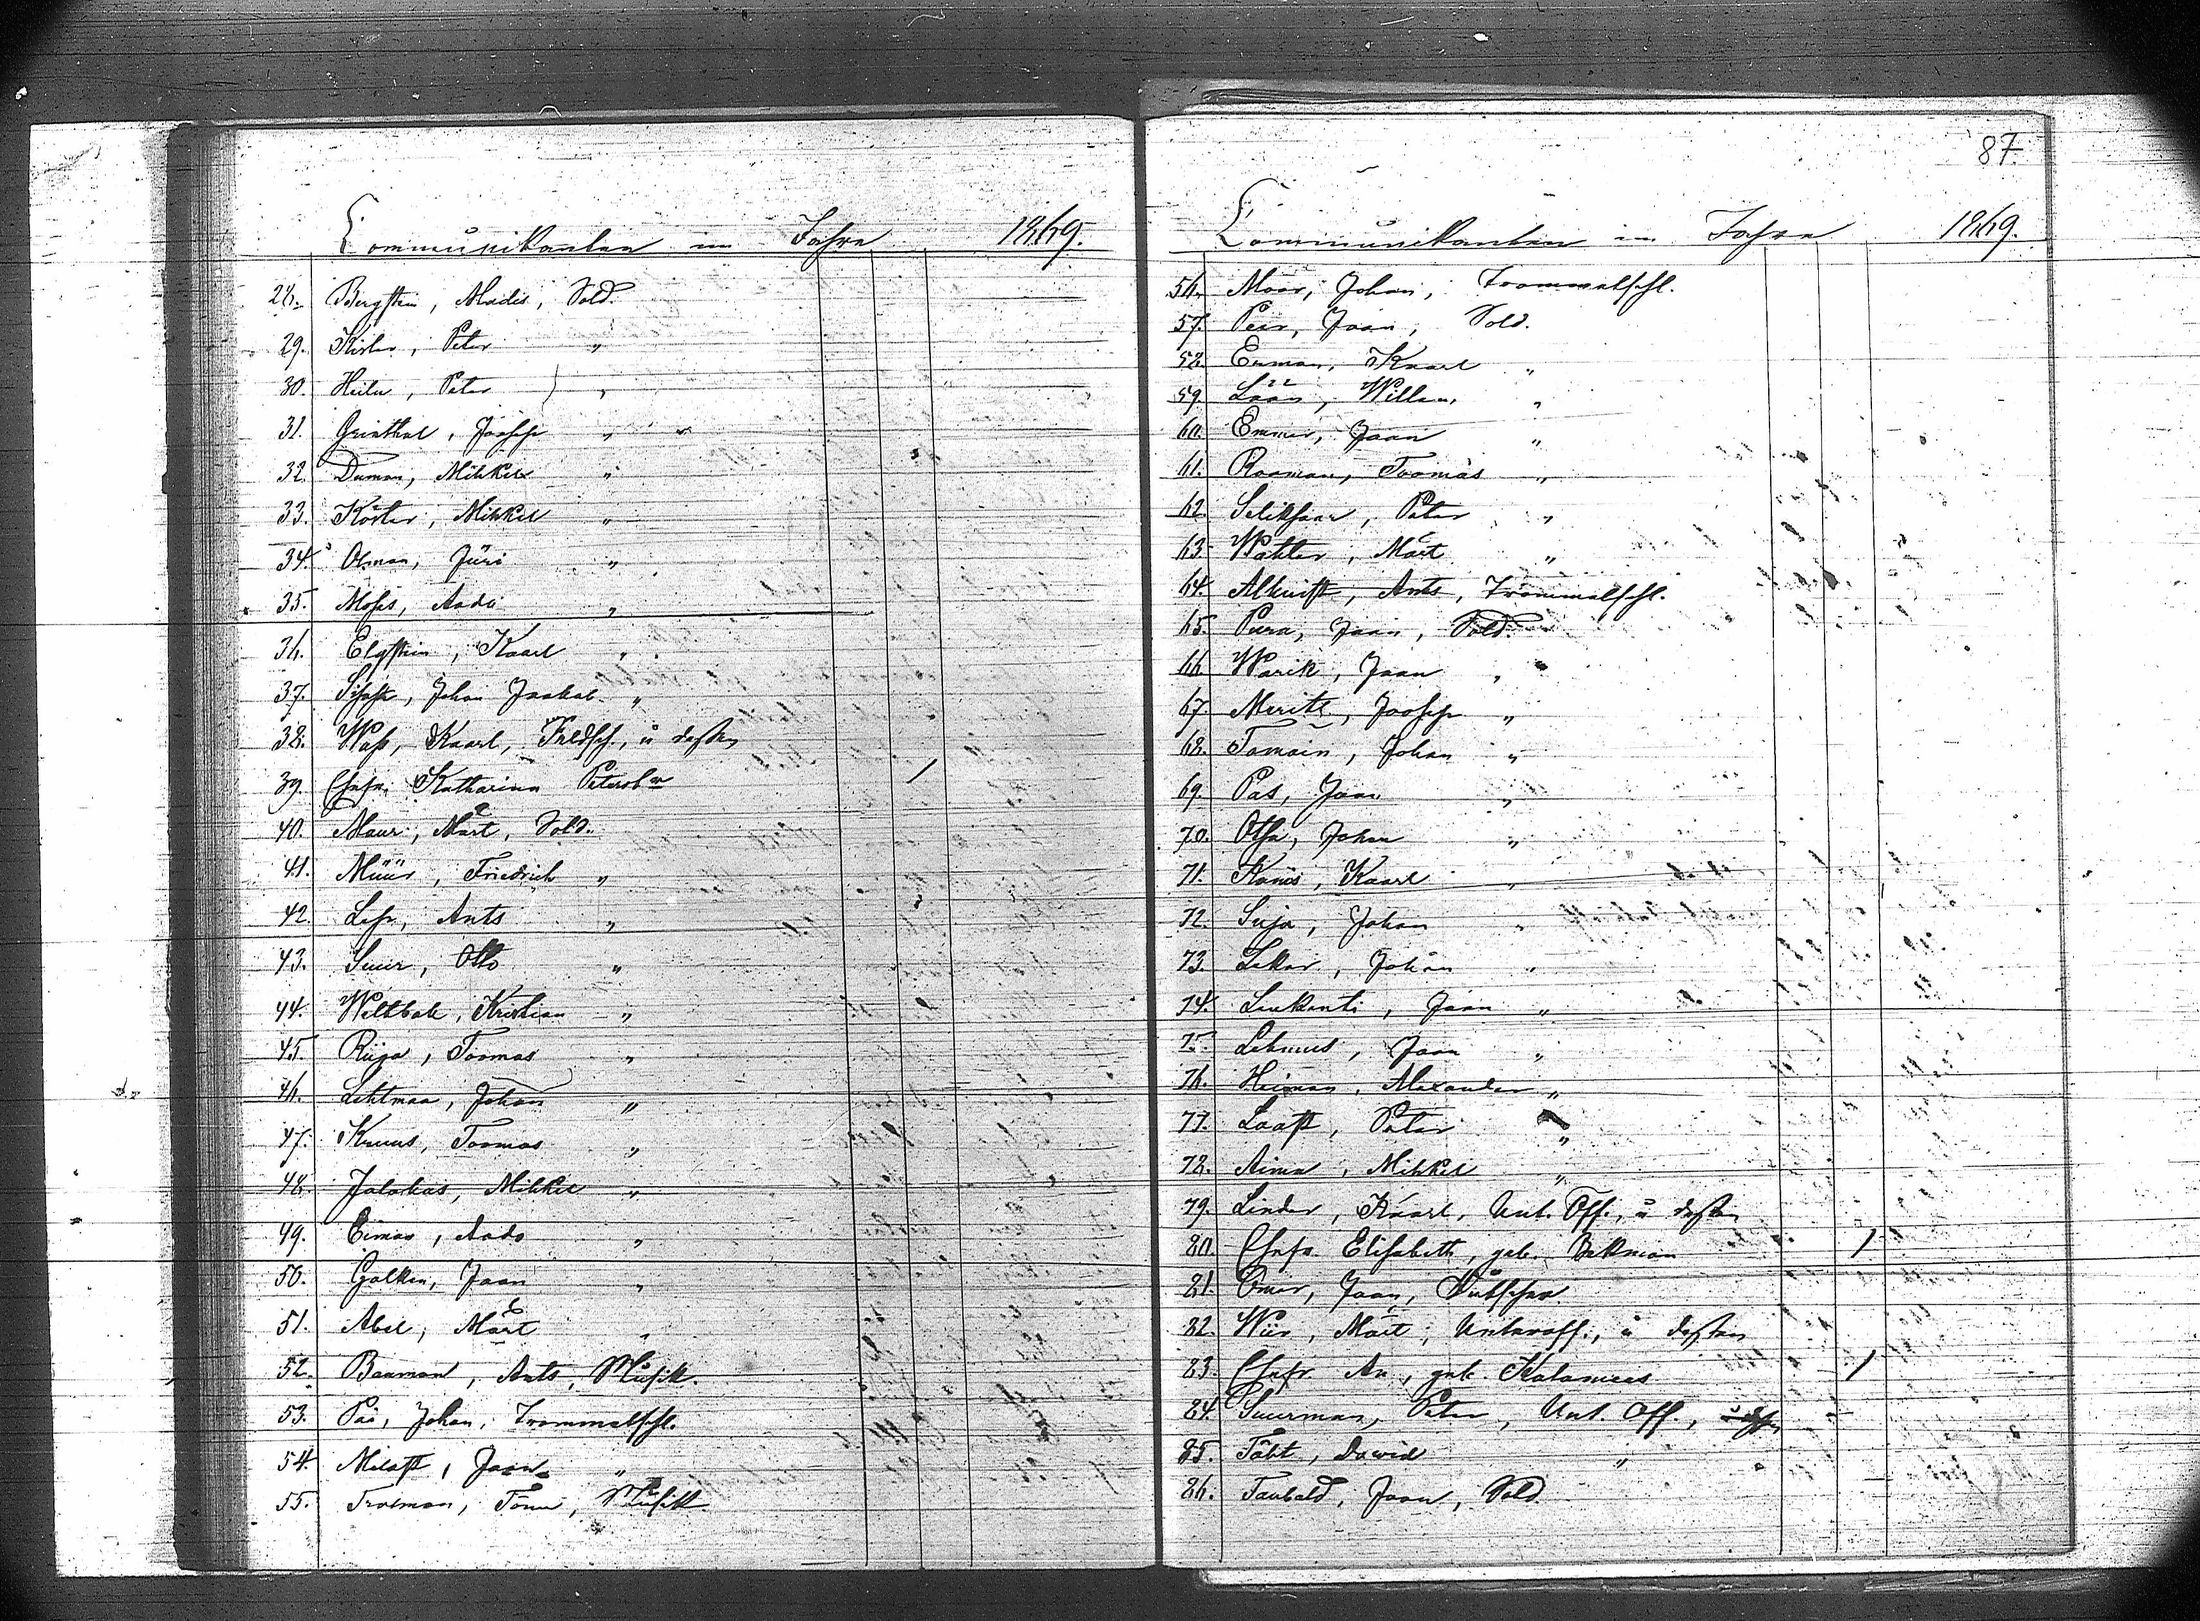 Communikanten im Jahre 1869.
28. Bergstein, Madis, Sold.
29. Kister, Peter "
30. Heiln, Peter "
31. Grünthal, Joosep "
32. Duman, Mihkel "
33. Köster, Mihkel "
34. Osman, Jüri "
35. Moses, Aado "
36. Elgstein, Kaarl "
37. Johan Jaakob "
38. Wass, Kaarl, Feldsch., u dessen
39. Ehefr. Katharina Petersb
40. Maur, Märt, Sold.
41. Müür, Friedrich "
42. Less, Ants "
43. Suur, Otto "
44. Weltbak, Kristian "
45. Riija, Toomas "
46. Lehtmaa, Johan "
47. Kruus, Toomas "
48. Jalakas, Mihkel "
49. Eimas, Aado "
50. Golken, Jaan "
51. Abel, Märt "
52. Bauman, Ants, Musik.
53. Pas, Johan, Trommelschl.
54. Milast, Jaan "
55. Trolman, Tönu, Musik
87.
Communikanten im Jahre 1869.
56. Moor, Johan, Trommelschl.
57. Peir, Jaan, Sold.
58. Enman, Kaarl "
59. Lään, Willem "
60. Emmer, Jaan "
61. Rooman, Toomas "
62. Seliksaar, Peter "
63. Wahter, Märt "
64. Altquist, Ants, Trommelschl.
65. Pura, Jaan, Sold.
66. Warik, Jaan "
67. Merite, Joosep "
68. Tomain, Johan "
69. Pas, Jaan "
70. Otsa, Johan "
71. Kanis, Kaarl "
72. Suja, Johan "
73. Lekar, Johan "
74. Leukanti, Jaan "
75. Lehmus, Jaan "
76. Heiman, Alexander "
77. Laast, Peter "
78. Aima, Mihkel "
79. Linder, Kaarl, Unt. Off., u dessen
80. Ehefr. Elisabeth, geb. Bekman
81. Omer, Jaan,
82. Wiir, Märt, Unteroff., u dessen
83. Ehefr. An, geb. Kalamees
84. Suurman, Peter, Unt. Off.,
85. Täht, Dawid "
86. Taubald, Jaan, Sold.